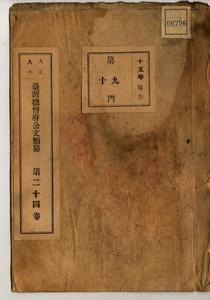 06796
十五年保存
第
十九
門
大正
八年
臺灣總督府公文類纂
第二十四卷